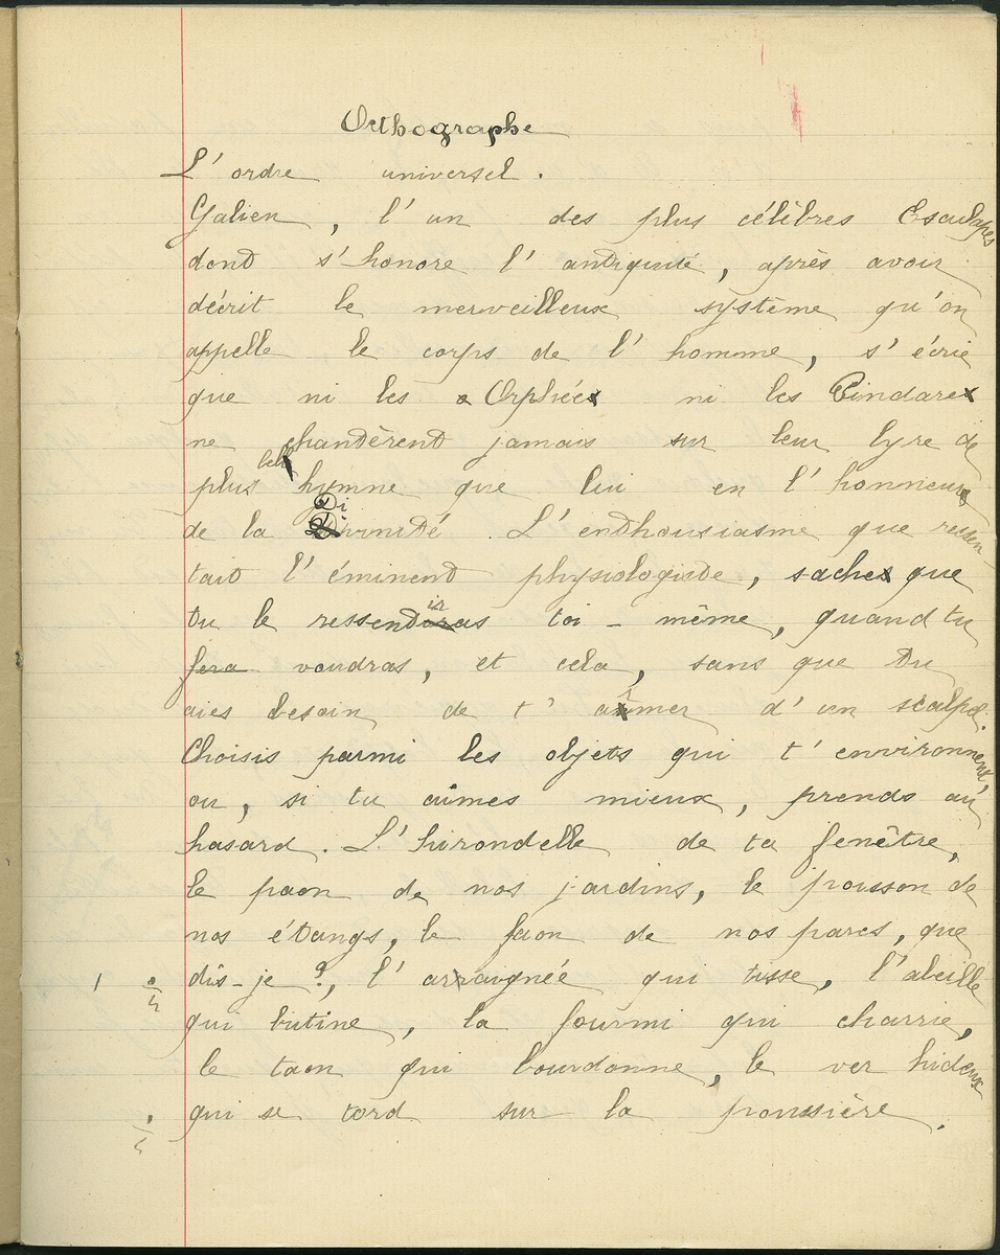 Orthographe
L'ordre universel.
Galien, l'un des plus célèbres Esculapes
dont s'honore l'antiquité, après avoir
décrit le merveilleux système qu'on
appelle le corps de l'homme, s'écrie
que ni les Orphée ni les Pindare
ne chantèrent jamais sur leur lyre de
plus bel hymne que lui en l'honneur
de la Divinité. L'enthousiasme que ressen
tait l'éminent physiologiste, sache que
tu le ressentiras toi-même, quand tu
fera voudras, et cela, sans que tu
aies besoin de t'armer d'un scalpel.
Choisis parmi les objets qui t'environnent,
ou, si tu aimes mieux, prends au
hasard. L'hirondelle de ta fenêtre,
le paon de nos jardins, le poisson de
nos étangs, le faon de nos parcs, que
dis-je ?, l'araignée qui tisse, l'abeille
qui butine, la fourmi qui charrie,
le taon qui bourdonne, le ver hideux
qui se tord sur la poussière.